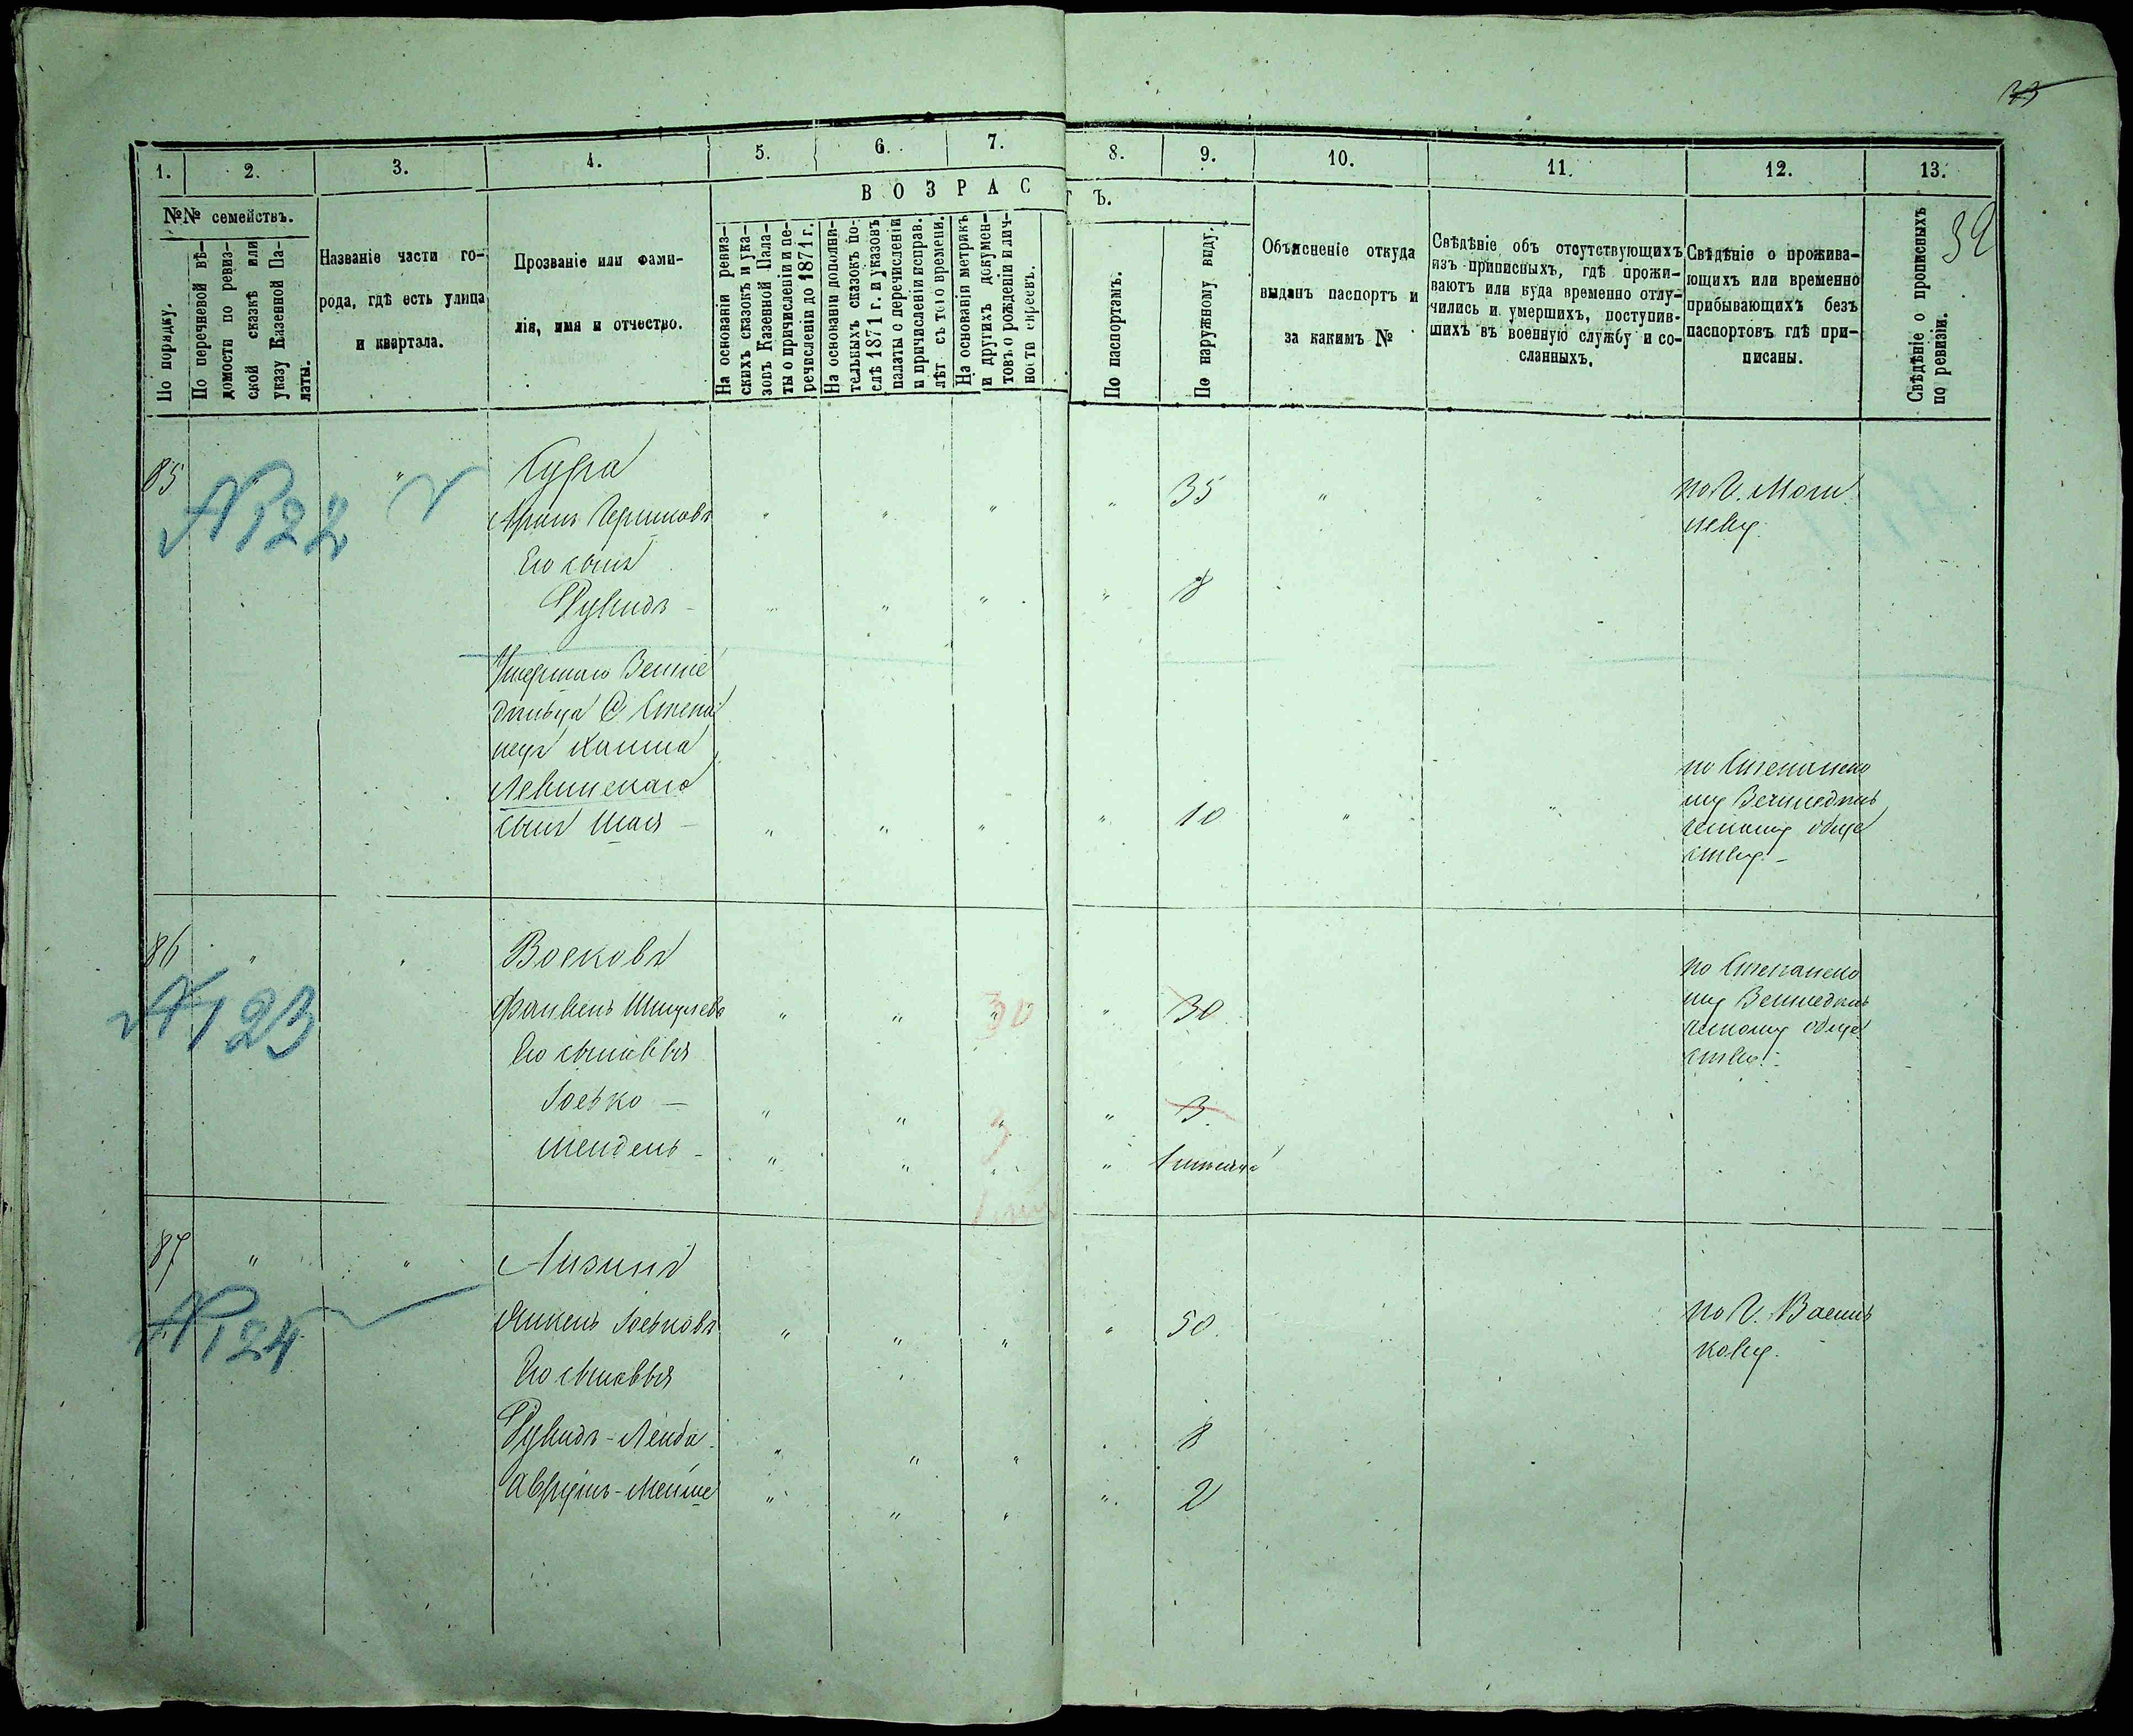 33
1.
2.
3.
4.
5.
6.
7.
8.
9.
10.
11.
12.
13.
ВОЗРАС
Ъ.
№№ семействъ.
По порядку.
По перечневой вѣ-
домости по ревиз-
ской сказкѣ или
указу Казенной Па-
латы.
Названіе части го-
рода, гдѣ есть улица
и квартала.
Прозваніе или фами-
лія, имя и отчество.
На основаніи ревиз-
скихъ сказокъ и ука-
зовъ Казенной Пала-
ты о причисленіи и пе-
речисленіи до 1871 г.
На основаніи дополни-
тельныхъ сказокъ по-
слѣ 1871 г. и указовъ
палаты о перечисленіи
и причисленіи исправ.
лѣт съ того времени.
На основаніи метрикъ
и другихъ докумен-
товъ о рожденіи и лич-
ности евреевъ.
По паспортамъ.
По наружному виду.
Объясненіе откуда
выданъ паспортъ и
за какимъ №
Свѣдѣніе объ отсутствующихъ
изъ приписныхъ, гдѣ прожи-
ваютъ или куда временно отлу-
чились и умершихъ, поступив-
шихъ въ военную службу и со-
сланныхъ.
Свѣдѣніе о прожива-
ющихъ или временно
прибывающихъ безъ
паспортовъ гдѣ при-
писаны.
Свѣдѣніе о прописныхъ
по ревизіи.
85
№122
Аронъ Гершковъ
35
по г. Моги
леву.
Его сынъ
Рувинъ -
8
Умершаго Земле
дѣльца С. Степа
Хаима
Левинскаго
сынъ Шая -
10
по Степанско
му Земледѣль
ческому обще
ству. -
86
№123
Восковъ
Файвель Шмулевъ
30
30
по Степанско
му Земледѣль
ческому обще
ству. -
Его сыновья
Іосько -
3
3
Мендель -
87
№124
Лизинъ
Янкель Іоськовъ
50
по г. Василь
кову.
Его сыновья
Рувинъ - Лейба
8
Аврумъ - Мейше
2